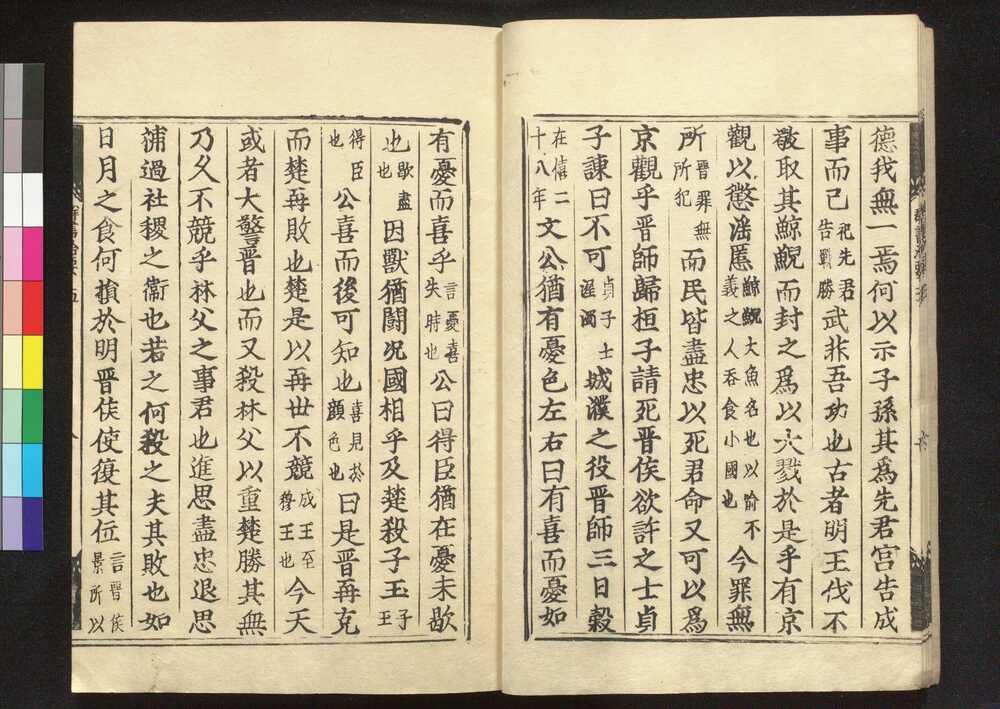 德我無一焉何以示子孫其爲先君宮告成
事而已祀先君告戰勝武非吾功也古者明王伐不
敬取其鯨鯢而封之爲以大戮於是乎有京
觀以懲淫慝鯨鯢大魚名也以喻不義之人吞食小國也今罪無
所晉罪無所犯而民皆盡忠以死君命又可以爲
京觀乎晉師歸桓子請死晉侯欲許之士貞
子諫曰不可貞子士渥濁城濮之役晉師三日穀
在僖二十八年文公猶有憂色左右曰有喜而憂如
有憂而喜乎言憂喜失時也公曰得臣猶在憂未歇
也歇盡也因獸猶鬪况國相乎及楚殺子玉子玉
得臣也公喜而後可知也喜見於顏色也曰是晉再克
而楚再敗也楚是以再世不競成王至穆王也今天
或者大警晉也而又殺林父以重楚勝其無
乃久不競乎林父之事君也進思盡忠退思
補過社稷之衞也若之何殺之夫其敗也如
日月之食何損於明晉侯使復其位言晉侯景所以